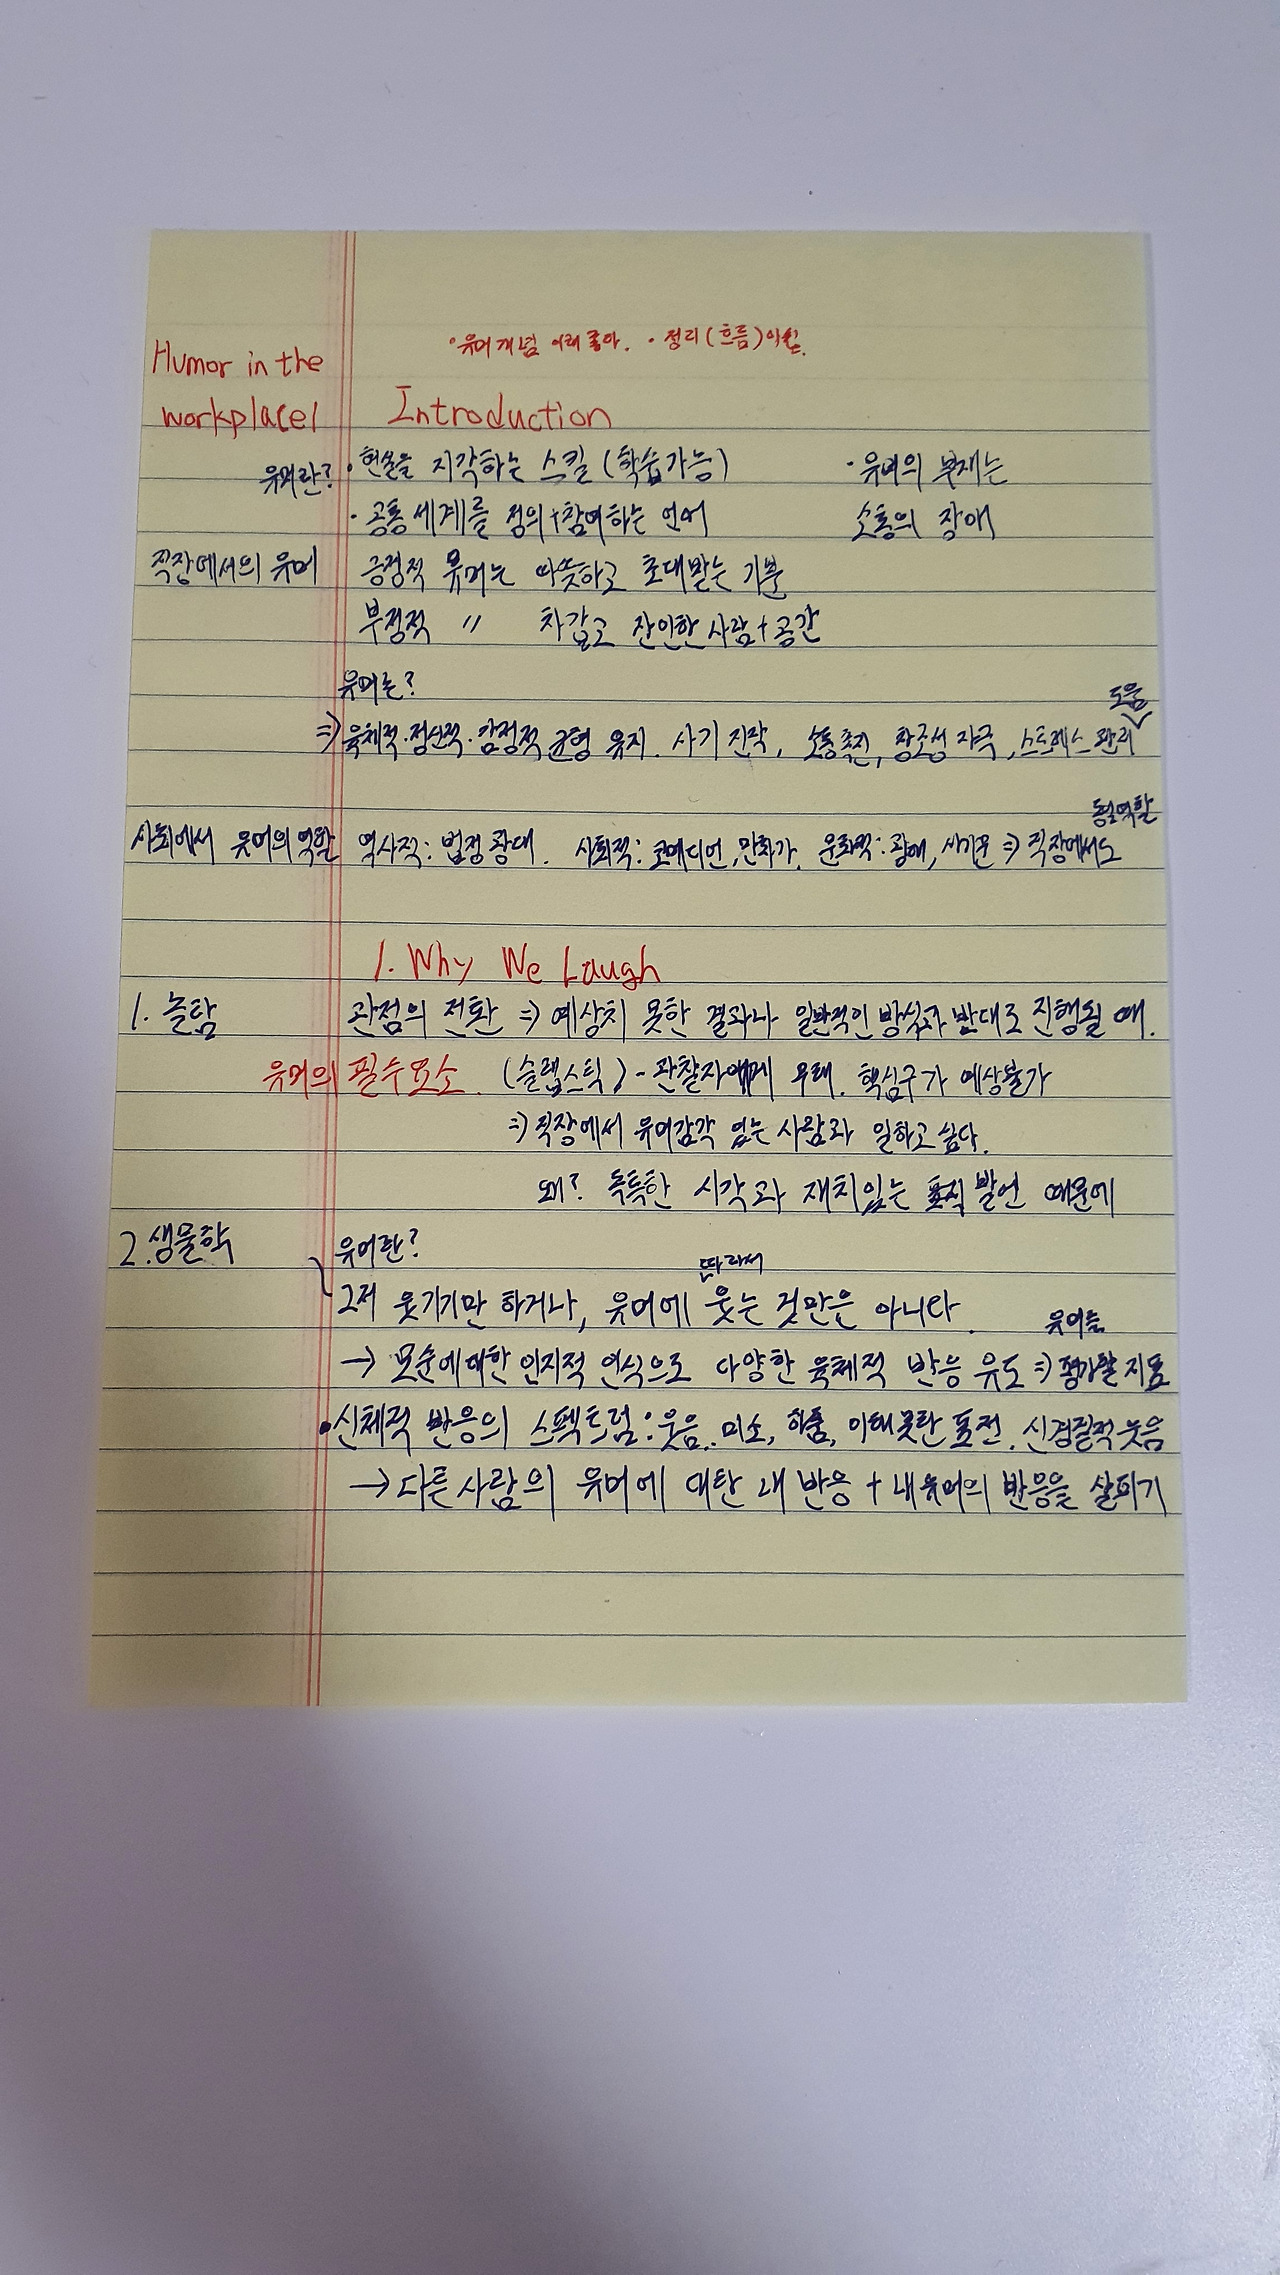 ·유머개념 이래좋아. ·정리(흐름)아쉽.
Humor in the
workplace1 Introduction
유머란? ·현실을 지각하는 스킬 (학습가능) ·유머의 부재는
·공통세계를 정의+참여하는 언어 소통의 장애
직장에서의 유머 긍정적 유머는 따뜻하고 초대받는 기분
부정적 〃 차갑고 잔인한 사람+공간
유머는?
도움
⇒ 육체적·정신적·감정적 균형 유지. 사기 진작, 소통촉진, 창조성 자극, 스트레스 관리
동일역할
사회에서 유머의 역할 역사적: 법정 광대. 사회적: 코메디언, 만화가. 문화적: 광대, 사기꾼 ⇒ 직장에서도
1. Why We Laugh
1. 놀람 관점의 전환 ⇒ 예상치 못한 결과나 일반적인 방식과 반대로 진행될 때.
유머의 필수요소. (슬랩스틱) - 관찰자에게 우래. 핵심구가 예상불가
⇒ 직장에서 유머감각 있는 사람과 일하고 싶다.
왜? 독특한 시각과 재치있는 표적 발언 때문에
2. 생물학 유머란?
따라서
그저 웃기기만 하거나, 유머에 웃는 것만은 아니다.
유머를
→ 모순에대한 인지적 인식으로 다양한 육체적 반응 유도 ⇒ 평가할 지표
·신체적 반응의 스펙트럼: 웃음, 미소, 하품, 이해못한 표정, 신경질적 웃음
→ 다른사람의 유머에 대한 내 반응 + 내유머의 반응을 살피기